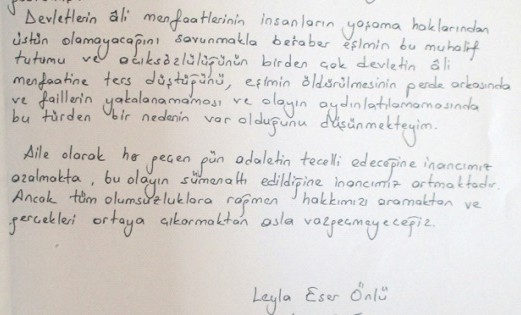 Devletlerin âli menfaatlerinin insanların yaşama haklarından
üstün olamayacağını savunmakla betaber eşimin bu muhalif
tutumu ve açıksözlülüğünün birden çok devletin âli
menfaatine ters düştüğünü, eşimin öldürülmesinin perde arkasında
ve faillerin yakalanamaması ve olayın aydınlatılamamasında
bu türden bir nedenin var olduğunu düşünmekteyim.
Aile olarak her geçen gün adaletin tecelli edeceğine inancımız
azalmakta, bu olayın sümenaltı edildiğine inancımız artmaktadır.
Ancak tüm olumsuzluklara rağmen hakkımızı aramaktan ve
gerçekleri ortaya çıkarmaktan asla vazgeçmeyeceğiz.
Leyla Eser Önlü